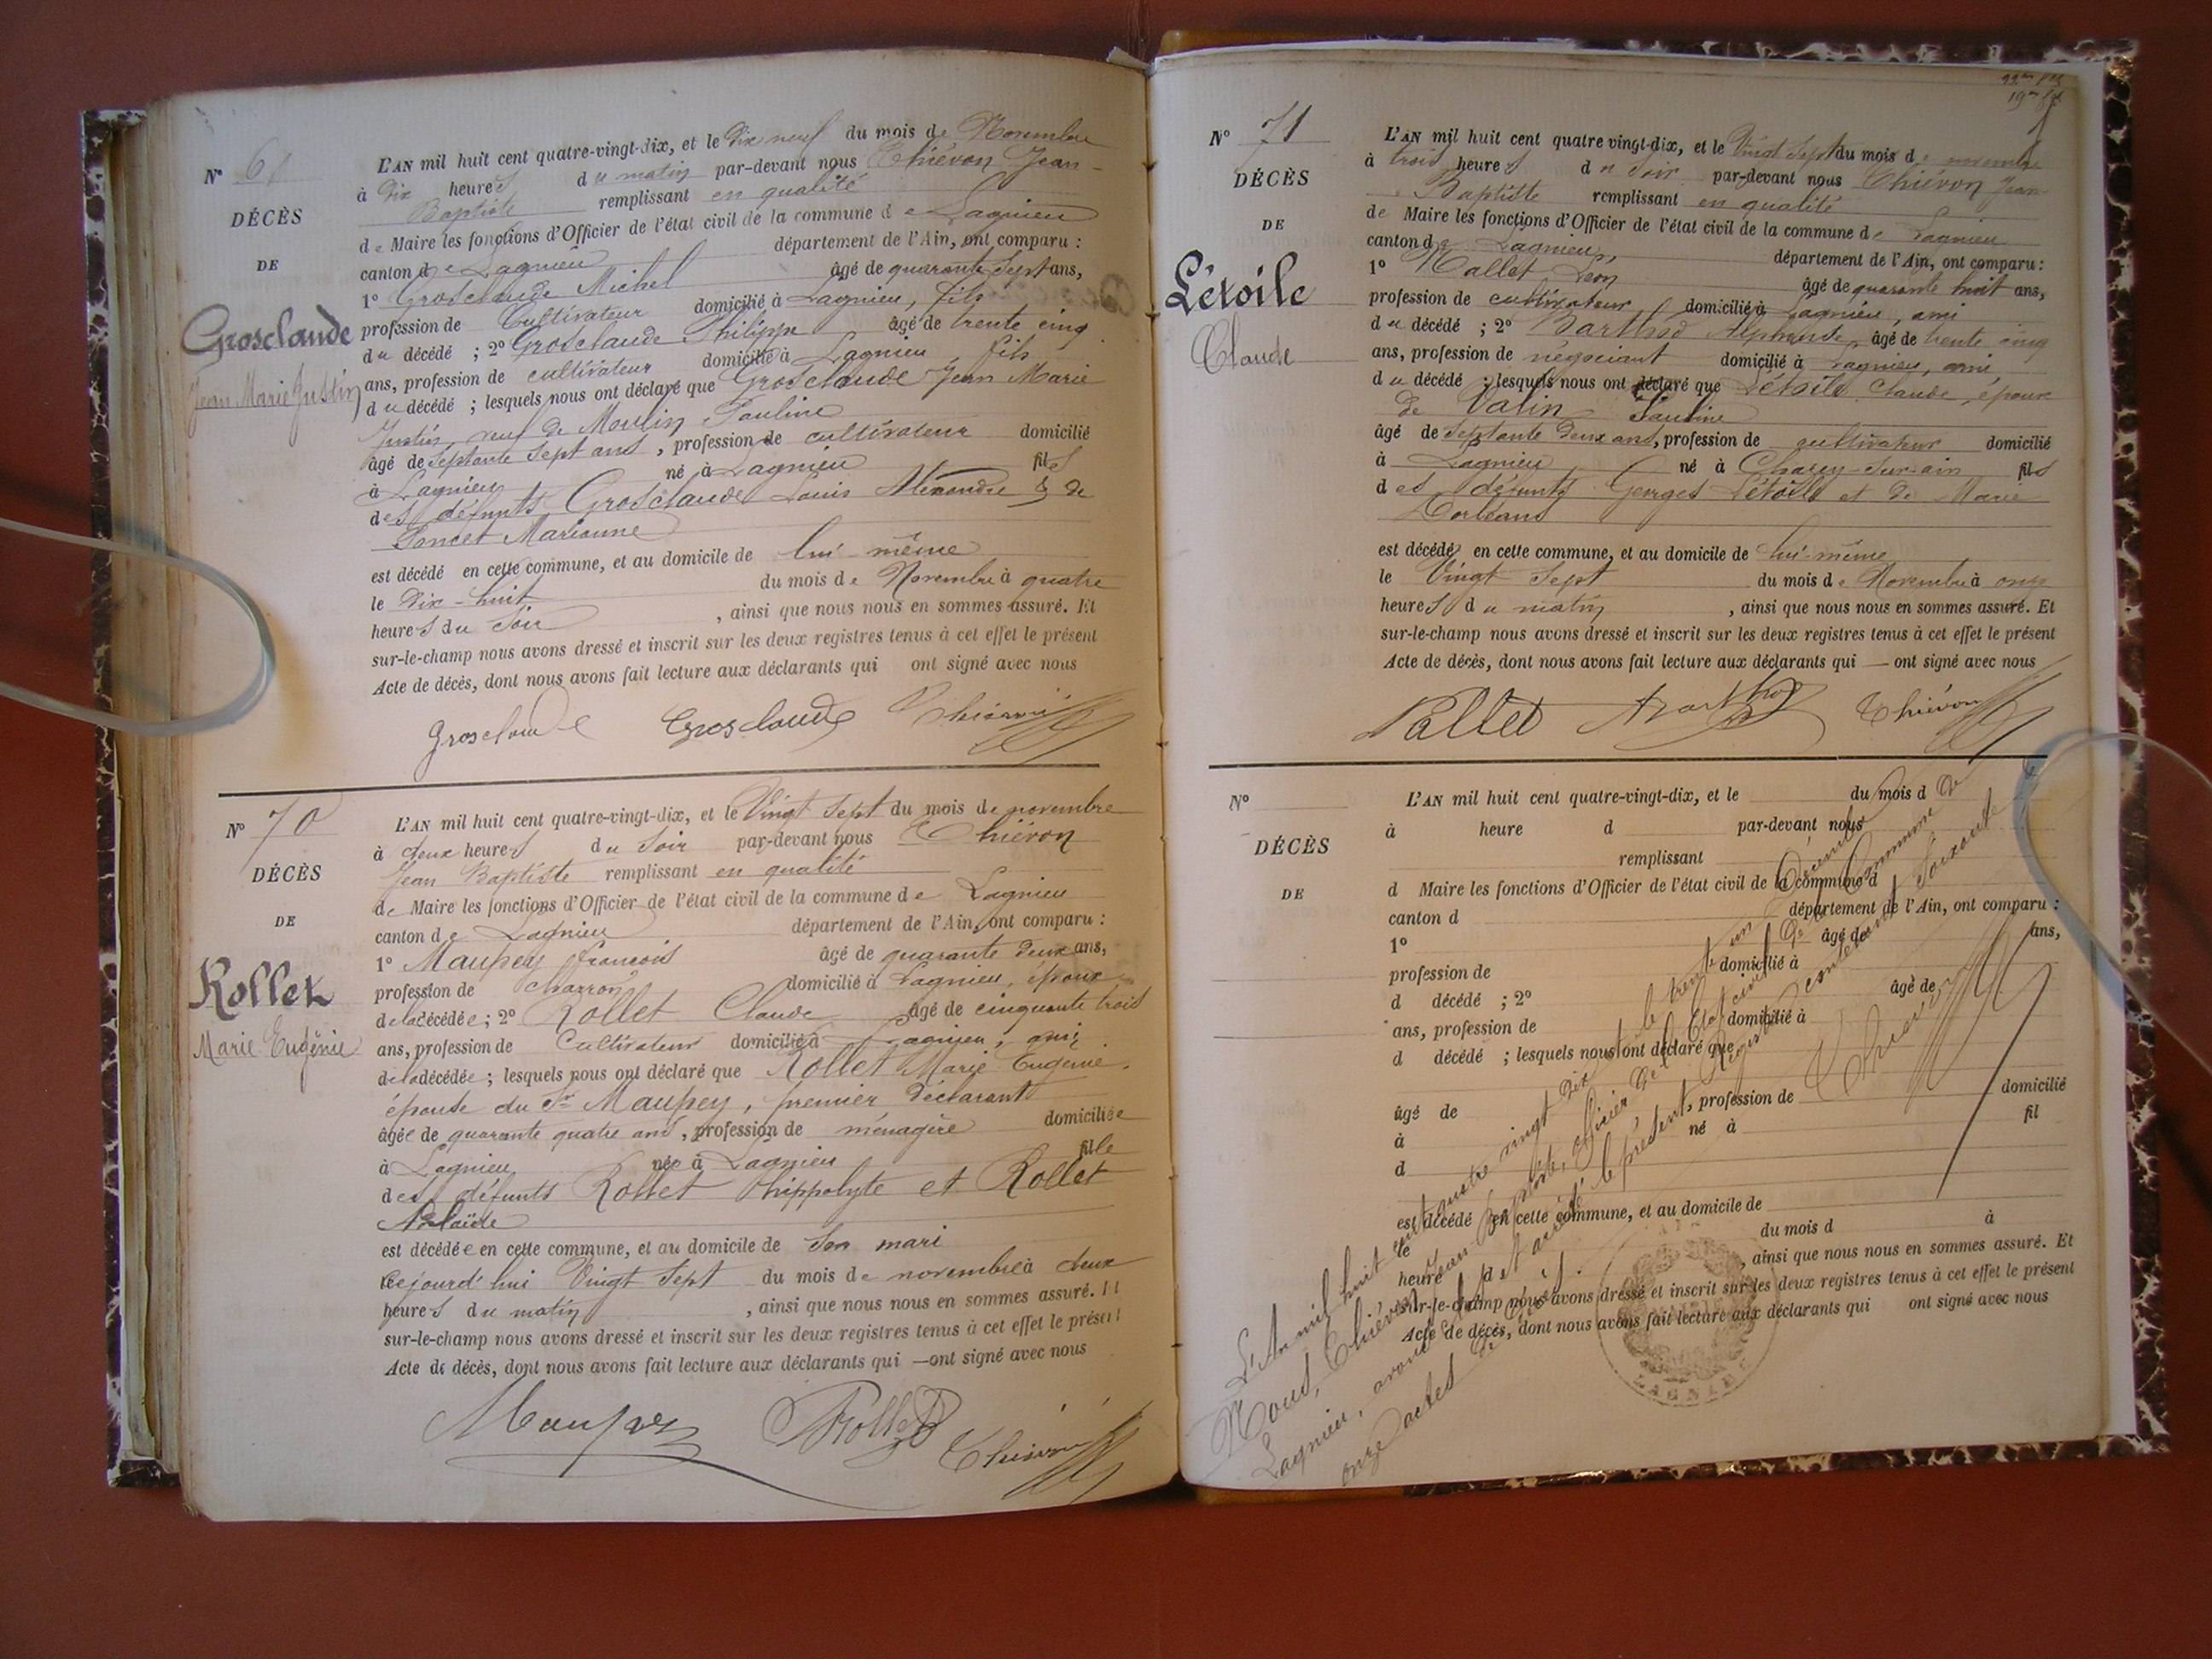 N° 6
DÉCÈS
DE
Grosclaude
Jean Marie Justin
L'AN mil huit cent quatre-vingt-dix, et le Dix neuf du mois de Novembre
à Dix heures du matin par-devant nous Thiévon Jean-
Baptiste remplissant en qualité
de Maire les fonctions d'Officier de l'état civil de la commune de Lagnieu
canton de Lagnieu département de l'Ain, ont comparu :
1° Grosclaude Michel âgé de quarante Sept ans,
profession de Cultivateur domicilié à Lagnieu, fils
du décédé ; 2° Grosclaude Philippe âgé de trente cinq
ans, profession de cultivateur domicilié à Lagnieu, fils
du décédé ; lesquels nous ont déclaré que Grosclaude Jean Marie
Justin, veuf de Moulin Pauline
âgé de Septante Sept ans, profession de cultivateur domicilié
à Lagnieu né à Lagnieu fils
des défunts Grosclaude Louis Alexandre & de
Poncet Marianne
est décédé en cette commune, et au domicile de lui-même
le Dix-huit du mois de Novembre à quatre
heures du Soir, ainsi que nous nous en sommes assuré. Et
sur-le-champ nous avons dressé et inscrit sur les deux registres tenus à cet effet le présent
Acte de décès, dont nous avons fait lecture aux déclarants qui ont signé avec nous
Grosclaude Grosclaude Thiévon
N° 70
DÉCÈS
DE
Rollet
Marie Eugénie
L'AN mil huit cent quatre-vingt-dix, et le Vingt Sept du mois de novembre
à deux heures du Soir par-devant nous Thiévon
Jean Baptiste remplissant en qualité
de Maire les fonctions d'Officier de l'état civil de la commune de Lagnieu
canton de Lagnieu département de l'Ain, ont comparu :
1° Maupey françois âgé de quarante Deux ans,
profession de Charron domicilié à Lagnieu, époux
de la décédée ; 2° Rollet Claude âgé de cinquante trois
ans, profession de Cultivateur domicilié à Lagnieu, ami
de la décédée ; lesquels nous ont déclaré que Rollet Marie Eugénie,
épouse du Sr Maupey, premier Déclarant
âgée de quarante quatre ans, profession de ménagère domiciliée
à Lagnieu née à Lagnieu fille
des défunts Rollet Hippolyte et Rollet
Adélaïde
est décédée en cette commune, et au domicile de Son mari
cejourd'hui Vingt Sept du mois de novembre à deux
heures du matin, ainsi que nous nous en sommes assuré. Et
sur-le-champ nous avons dressé et inscrit sur les deux registres tenus à cet effet le présent
Acte de décès, dont nous avons fait lecture aux déclarants qui — ont signé avec nous
Maupey Rollet Thiévon
N° 71
DÉCÈS
DE
Létoile
Claude
L'AN mil huit cent quatre-vingt-dix, et le Vingt Sept du mois de novembre
à trois heures du Soir par-devant nous Thiévon Jean-
Baptiste remplissant en qualité
de Maire les fonctions d'Officier de l'état civil de la commune de Lagnieu
canton de Lagnieu, département de l'Ain, ont comparu :
1° Nallet Léon âgé de quarante huit ans,
profession de cultivateur domicilié à Lagnieu, ami
du décédé ; 2° Barthod Alphonse âgé de trente cinq
ans, profession de négociant domicilié à Lagnieu, ami
du décédé ; lesquels nous ont déclaré que Létoile Claude, époux
de Valin Pauline
âgé de Septante Deux ans, profession de cultivateur domicilié
à Lagnieu né à Chazey-Sur-ain fils
des défunts Georges Létoile et de Marie
Dorléans
est décédé en cette commune, et au domicile de lui-même
le Vingt Sept du mois de Novembre à onze
heures du matin, ainsi que nous nous en sommes assuré. Et
sur-le-champ nous avons dressé et inscrit sur les deux registres tenus à cet effet le présent
Acte de décès, dont nous avons fait lecture aux déclarants qui — ont signé avec nous
Nallet Barthod Thiévon
N°
DÉCÈS
DE
L'AN mil huit cent quatre-vingt-dix, et le du mois d
à heure d par-devant nous
remplissant
d Maire les fonctions d'Officier de l'état civil de la commune d
canton d département de l'Ain, ont comparu :
1° âgé de ans,
profession de domicilié à
d décédé ; 2° âgé de
ans, profession de domicilié à
d décédé ; lesquels nous ont déclaré que
âgé de , profession de domicilié
à né à fil
d
est décédé en cette commune, et au domicile de
le du mois d à
heure d , ainsi que nous nous en sommes assuré. Et
sur-le-champ nous avons dressé et inscrit sur les deux registres tenus à cet effet le présent
Acte de décès, dont nous avons fait lecture aux déclarants qui ont signé avec nous
L'An mil huit cent quatre vingt Dix et le trente un Décembre
Nous, Thiévon Jean-Baptiste, officier de l'Etat civil de la Commune de
Lagnieu, avons clos et arrêté le présent Registre contenant Soixante
onze actes de Décès.
Thiévon
LAGNIEU